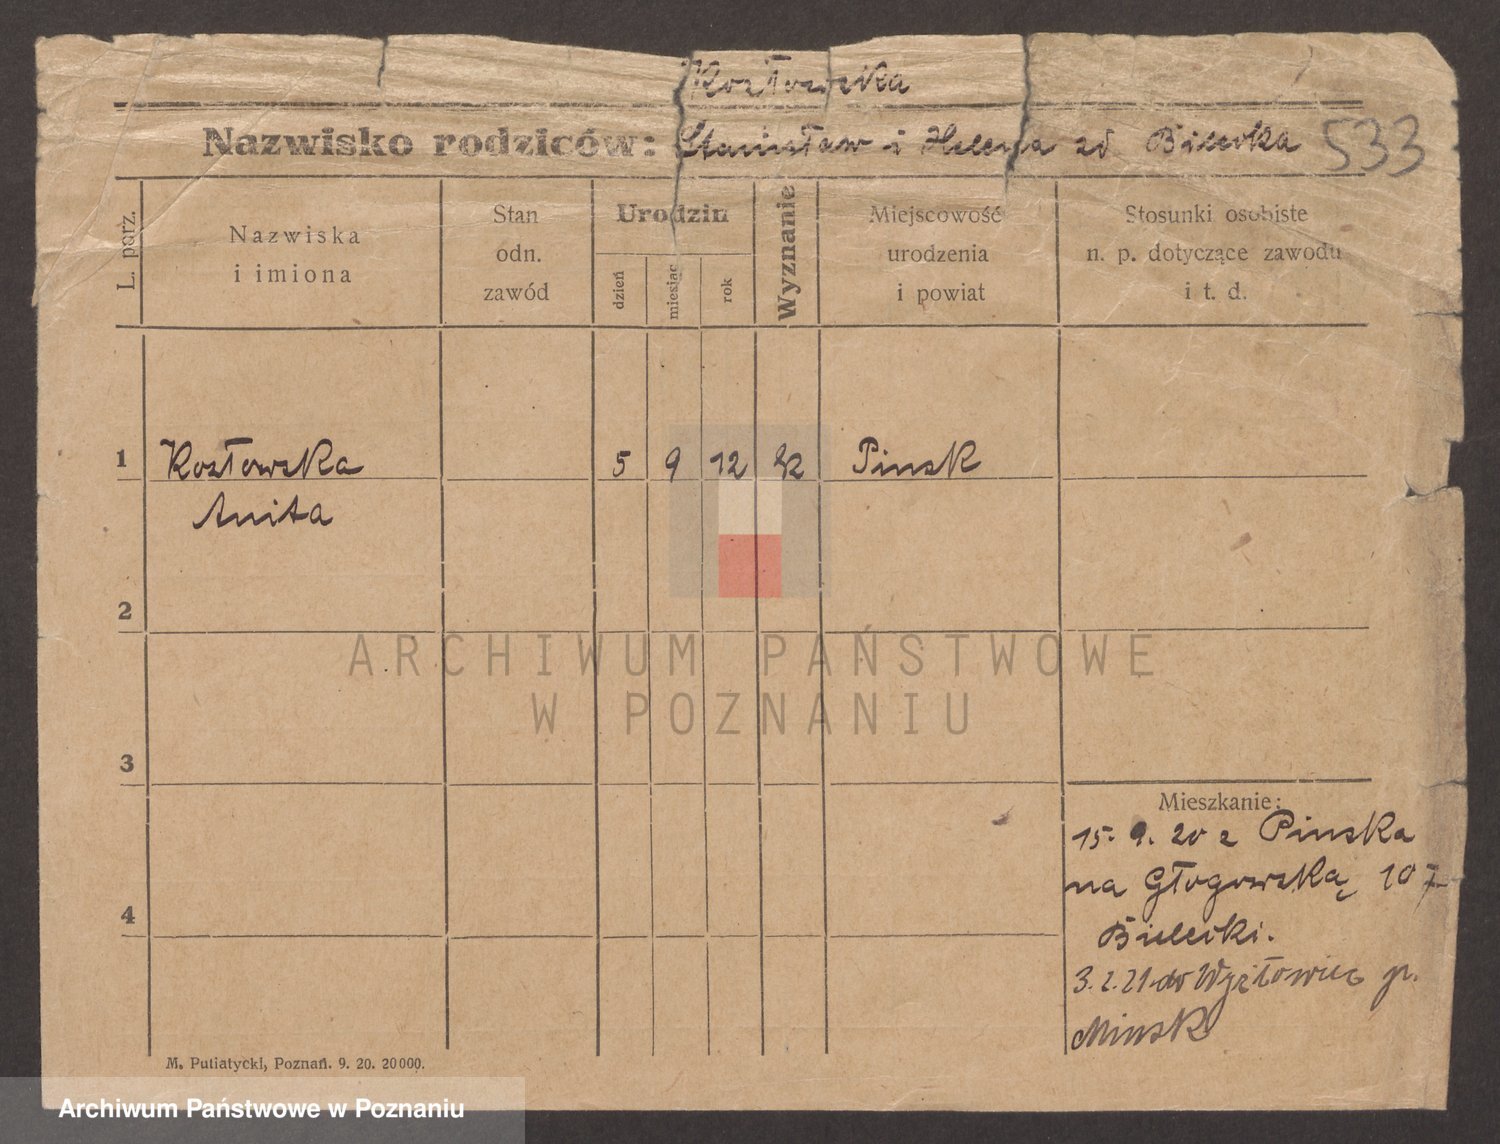 Kozłowska
Nazwisko rodziców: Stanisław i Helena zd. Bielecka 533
L. porz.
Nazwiska
i imiona
Stan
odn.
zawód
Urodzin
dzień
miesiąc
rok
Wyznanie
Miejscowość
urodzenia
i powiat
Stosunki osobiste
n. p. dotyczące zawodu
i t. d.
1 Kozłowska 5 9 12 Pinsk
Anita
2
3
4
Mieszkanie:
15. 9. 20 z Pinska
na Głogowską 107
Bielecki.
3.2.21 do
Minsk
M. Putiatycki, Poznań. 9. 20. 20000.
ARCHIWUM PAŃSTWOWE
W POZNANIU
Archiwum Państwowe w Poznaniu